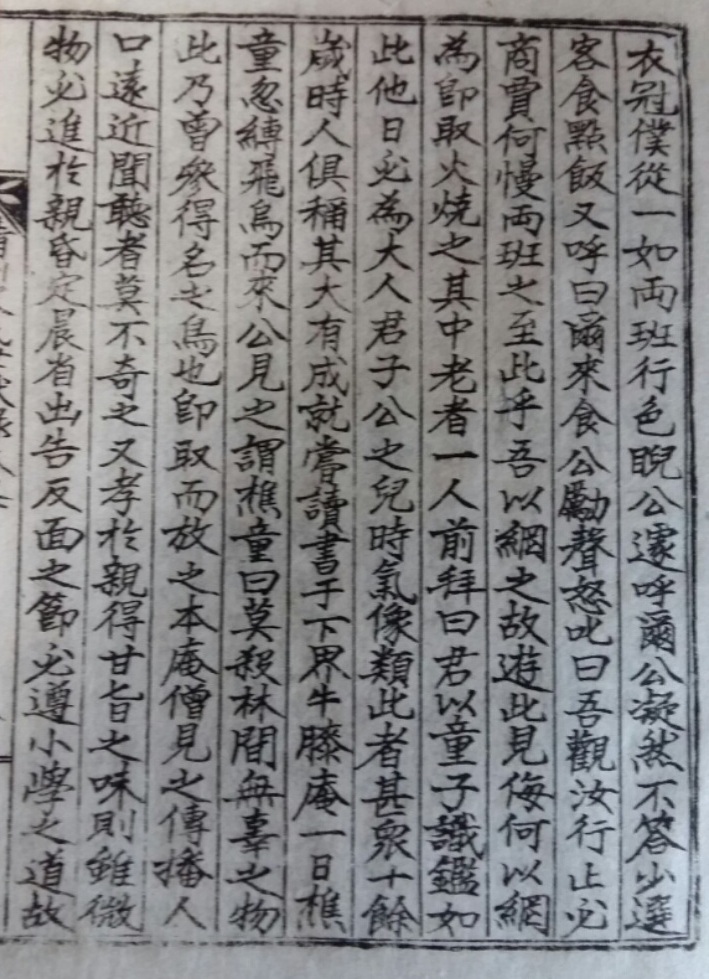 衣冠僕從一如両班行色睨公遽呼爾公凝然不答少選
客食點飯又呼曰爾來食公勵聲怒叱曰吾觀汝行止必
商賈何慢両班之至此乎吾以網之故遊此見侮何以網
為即取火燒之其中老者一人前拜曰君以童子識鑑如
此他日必為大人君子公之兒時氣像類此者甚衆十餘
歲時人俱稱其大有成就嘗讀書于下界牛膝庵一日樵
童忽縛飛鳥而來公見之謂樵童曰莫殺林間無辜之物
此乃曾參得名之鳥也即取而放之本庵僧見之傳播人
口遠近聞聽者莫不奇之又孝於親得甘旨之味則雖微
物必進於親昏定晨省出告反面之節必遵小學之道故